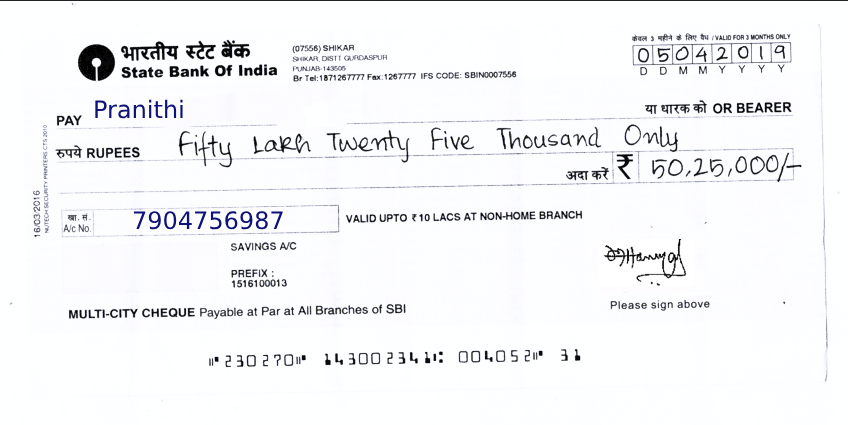 भारतीय स्टेट बैंक
State Bank Of India
(07556) SHIKAR
SHIKAR, DISTT GURDASPUR
PUNJAB-143505
Br Tel:1871267777 Fax:1267777 IFS CODE: SBIN0007556
केवल 3 महीने के लिए वैध / VALID FOR 3 MONTHS ONLY
05042019
D D M M Y Y Y Y
PAY Pranithi या धारक को OR BEARER
रुपये RUPEES Fifty Lakh Twenty Five Thousand Only
अदा करें ₹ 50,25,000/-
16/03/2016
NUTECH SECURITY PRINTERS CTS 2010
खा. सं.
A/c No. 7904756987
VALID UPTO ₹ 10 LACS AT NON-HOME BRANCH
SAVINGS A/C
PREFIX :
1516100013
MULTI-CITY CHEQUE Payable at Par at All Branches of SBI
Please sign above
⑈230270⑈ 143002341⑆ 004052⑈ 31